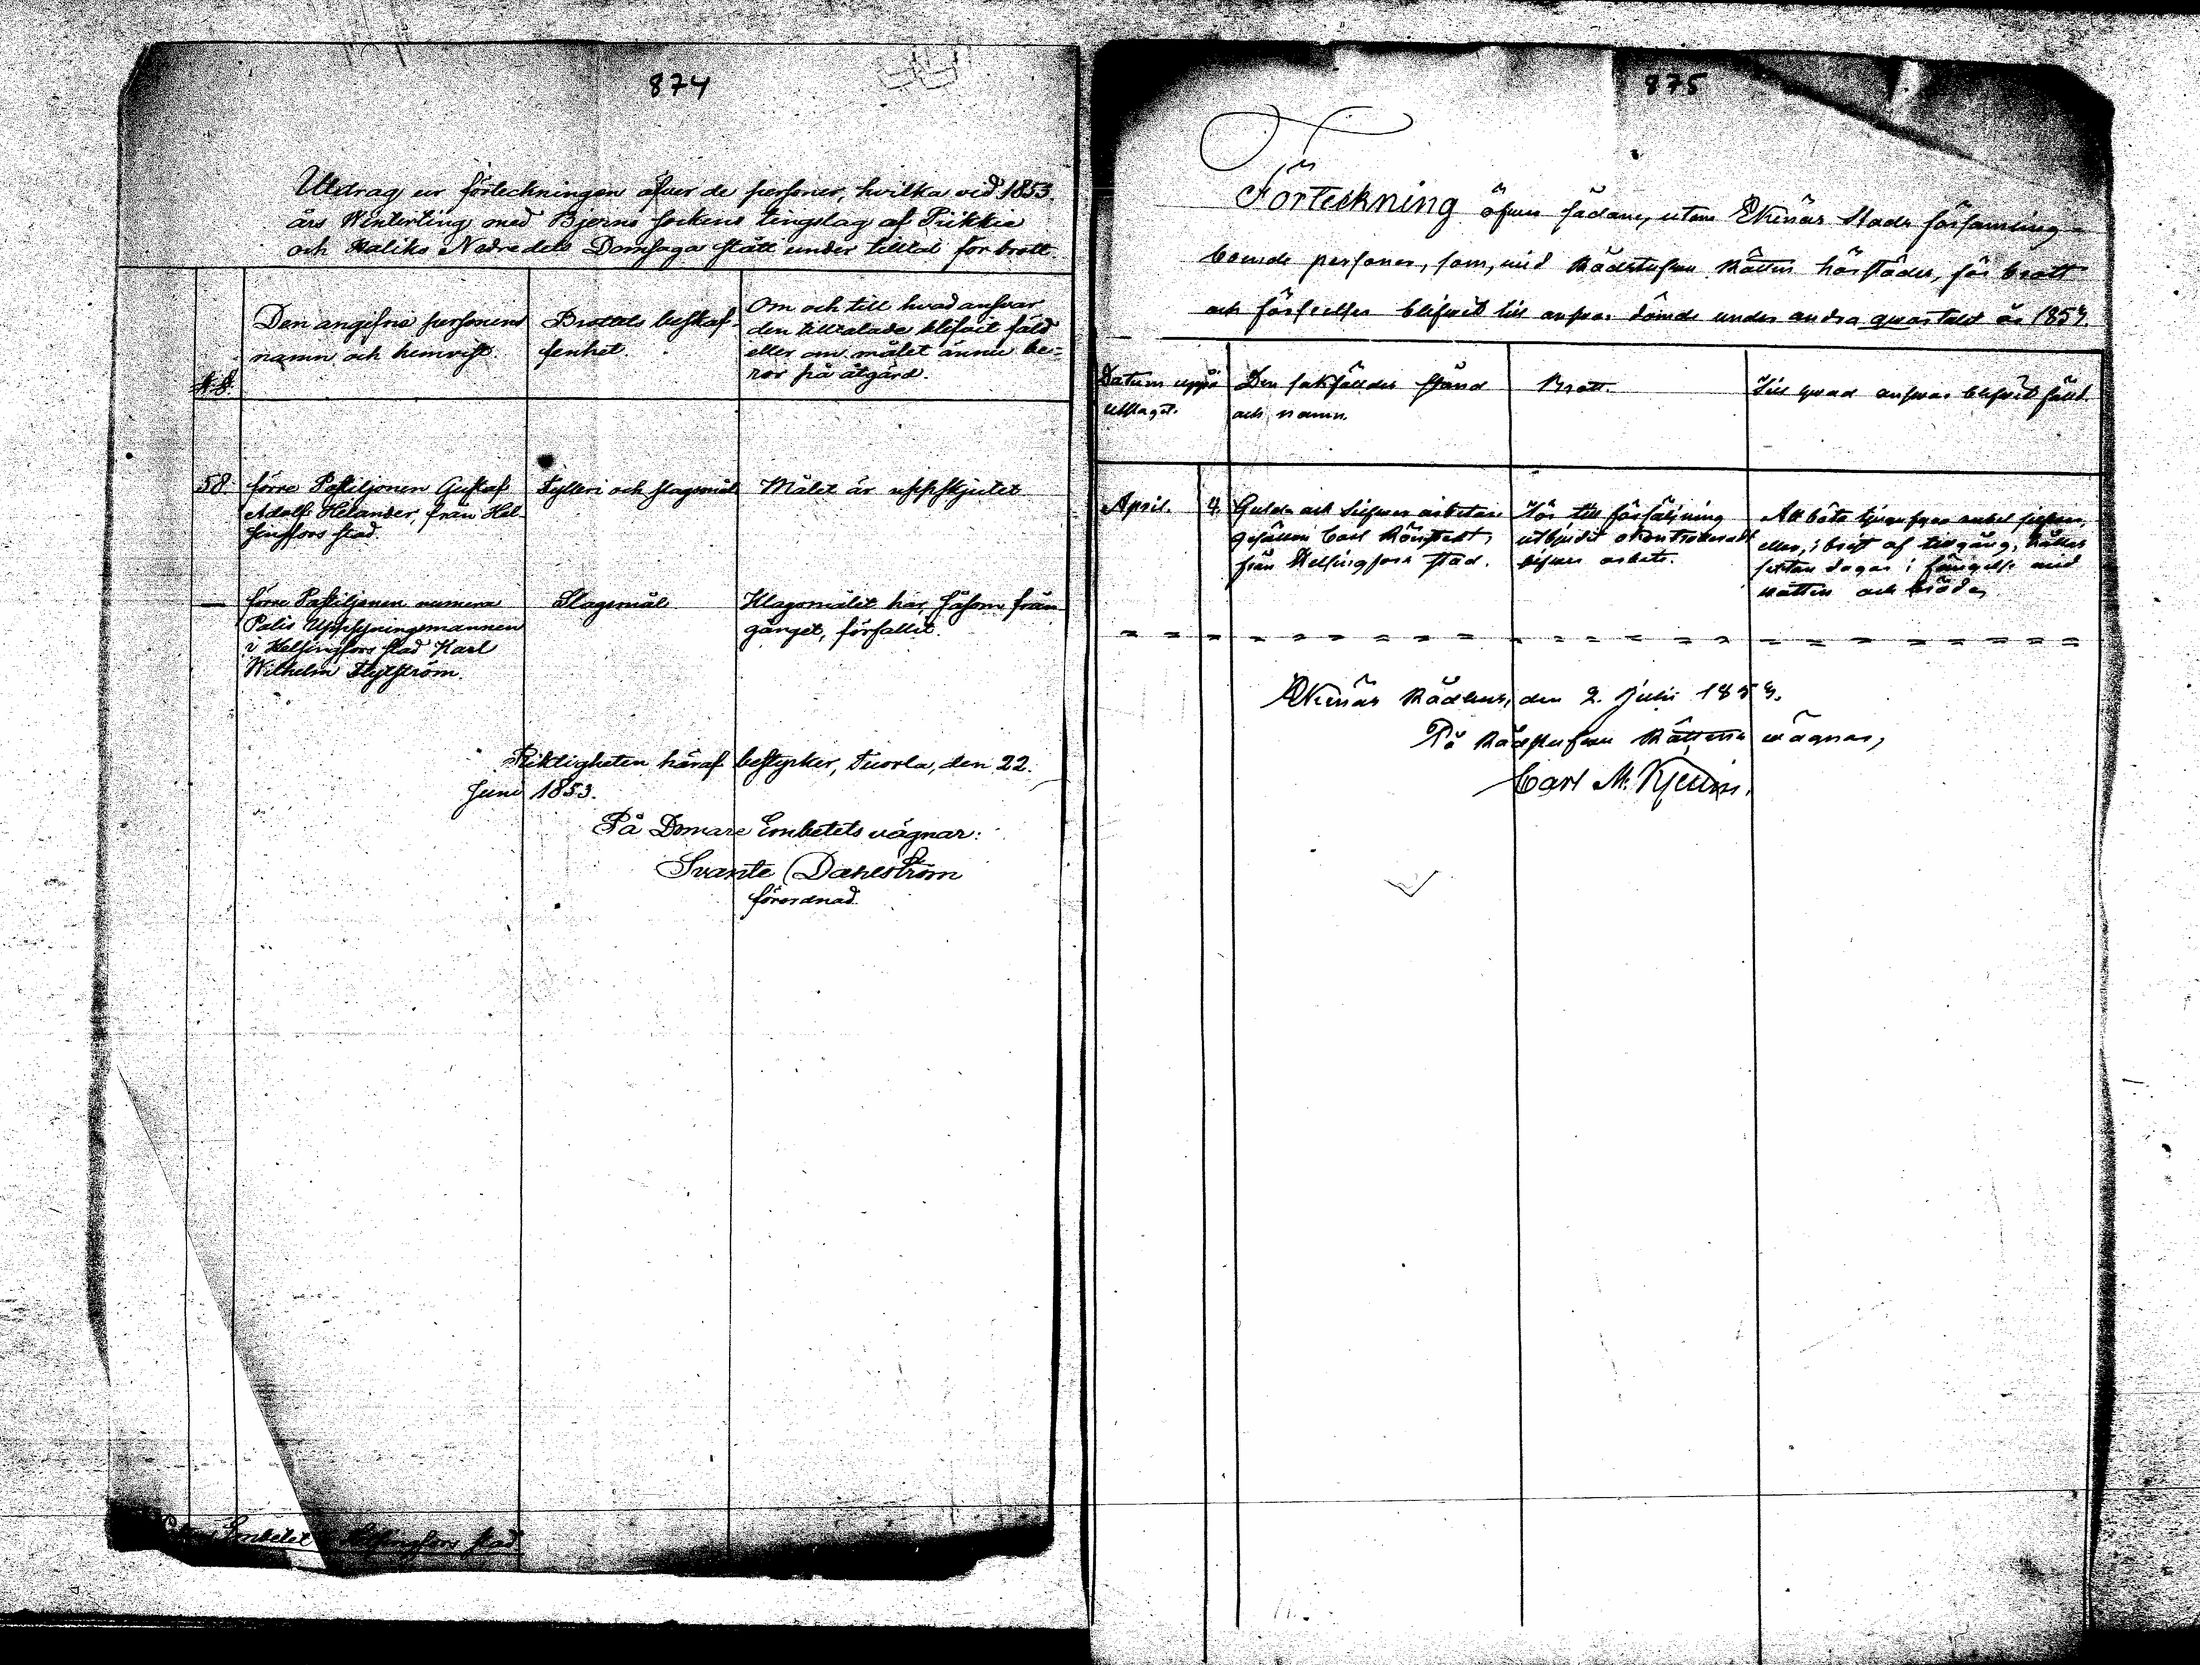 874
Utdrag ur förteckningen öfver de personer, hvilka vid 1853
års Winterting med Bjerno sockens tingslag af Piikkie
och Haliko Nedredels Domsaga stått under tilltal för brott.
N:o
Den angifne personens
namn och hemvist.
Brottets beskaf-
fenhet.
Om och till hvad ansvar
den tilltalade blifvit fäld
eller om målet ännu be-
ror på åtgärd.
58.
förre Postiljonen Gustaf
Adolf Helander, från Hel-
singfors stad.
Fylleri och slagsmål
Målet är uppskjutet
—
förre Postiljonen numera
Polis Uppsyningsmannen
i Helsingfors stad Karl
Wilhelm
Slagsmål
Klagomålet har, såsom från
gånget, förfallit.
Riktigheten häraf bestyrker, Tuorla, den 22.
Juni 1853.
På Domare Embetets vägnar:
Svante Dahlström
förordnad.
Embetet Helsingfors stad
875
Förteckning öfver sådane, utom Ekenäs Stads församling
boende personer, som, vid Rådstufvu Rätten härstädes, för brott
och förseelser blifvit till ansvar dömde under andra quartalet år 1853.
Datum uppå
utslaget.
Den sakfälldes stånd
och namn.
Brott.
Till hvad ansvar blifvit fälld.
April. 4.
Gulds och Silfver arbetare
gesällen Carl
från Helsingfors stad.
För till försäljning
utbjudit okontrolleradt
silfver arbete.
Att böta silfver,
eller, i brist af tillgång, hållas
dagar i fängelse vid
vatten och bröd.
Ekenäs Rådhus, den 2. Juli 1853.
På Rådstufvu Rättens vägnar,
Carl M.